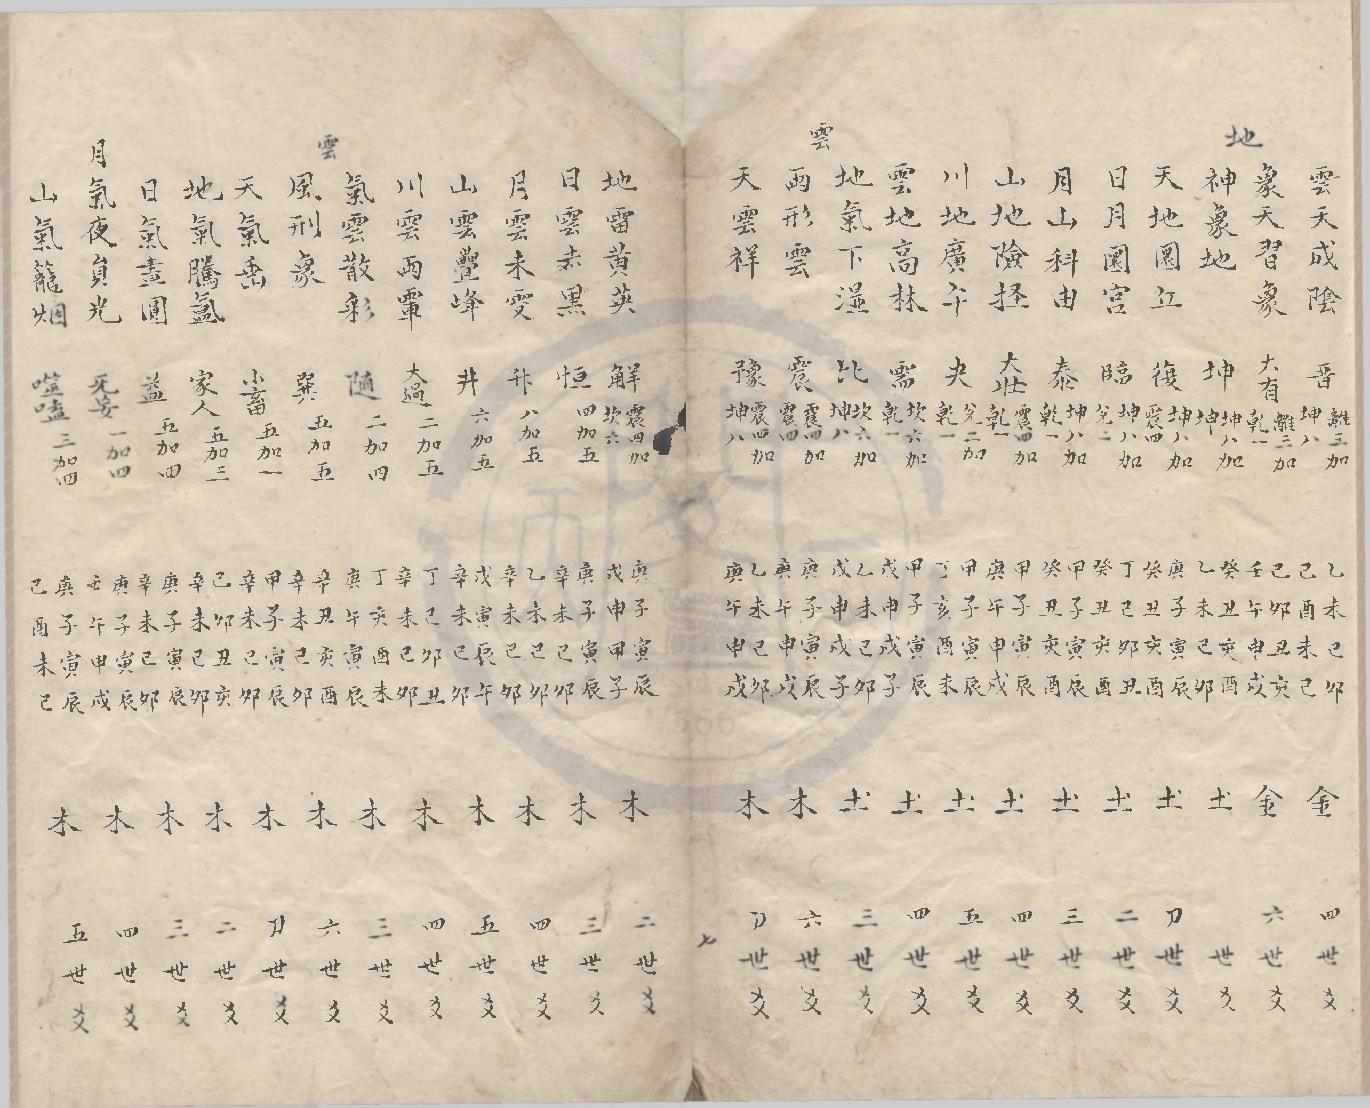 雲天成陰 晋 離三加坤八 乙未巳卯己酉未巳 金 四世爻
象天習象 大有 離三加乾一 己卯丑亥壬午申戌 金 六世爻
地
神象地 坤 坤八加坤 癸丑亥酉乙未巳卯 土 世爻
天地圜丘 復 坤八加震四 庚子寅辰癸丑亥酉 土 刀世爻
日月圜宮 臨 坤八加兌二 丁巳卯丑癸丑亥酉 土 二世爻
月山科由 泰 坤八加乾一 甲子寅辰癸丑亥酉 土 三世爻
山地險径 大壯 震四加乾一 甲子寅辰庚午申戌 土 四世爻
川地廣平 夬 兌二加乾一 甲子寅辰丁亥酉未 土 五世爻
雲地高林 需 坎六加乾一 甲子寅辰戊申戌子 土 四世爻
地氣下湿 比 坎六加坤八 乙未巳卯戊申戌子 土 三世爻
雲
雨形雲 震 震四加震四 庚子寅辰庚午申戌 木 六世爻
天雲祥 豫 震四加坤八 乙未巳卯庚午申戌 木 刀世爻
七
地雷黄英 解 震四加坎六 庚子寅辰戊申甲子 木 二世爻
日雲赤黒 恒 四加五 庚子寅辰辛未巳卯 木 三世爻
月雲未雯 升 八加五 乙未巳卯辛未巳卯 木 四世爻
山雲疊峰 井 六加五 戊寅辰午辛未巳卯 木 五世爻
川雲雨罩 大過 二加五 丁巳卯丑辛未巳卯 木 四世爻
氣雲散彩 随 二加四 丁亥酉未庚午寅辰 木 三世爻
雲
風刑象 巽 五加五 辛丑亥酉辛未巳卯 木 六世爻
天氣垂 小畜 五加一 甲子寅辰辛未巳卯 木 刀世爻
地氣騰氲 家人 五加三 己卯丑亥辛未巳卯 木 二世爻
日氣晝圓 益 五加四 庚子寅辰辛未巳卯 木 三世爻
月
氣夜負光 旡妄 一加四 庚子寅辰壬午申戌 木 四世爻
山氣籠烟 噬嗑 三加四 庚子寅辰己酉未巳 木 五世爻